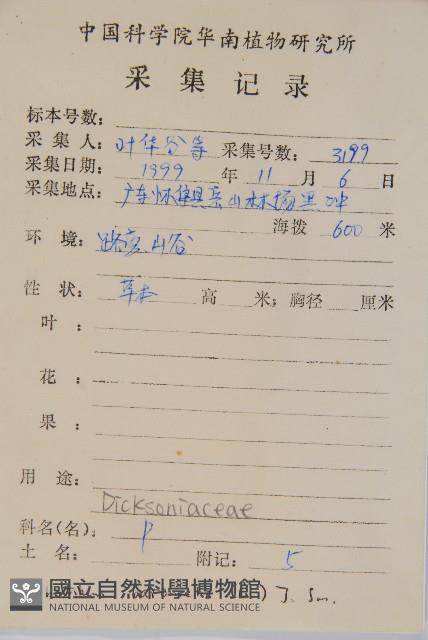 中国科学院华南植物研究所
采集记录
标本号数:
采集人: 叶华谷等 采集号数: 3199
采集日期: 1999 年 11 月 6 日
采集地点: 广东怀集县岳山林场黑冲
海拨 600 米
环境: 路旁山谷
性状: 草本 高 米; 胸径 厘米
叶:
花:
果:
用途:
Dicksoniaceae
科名(名): P
土名: 附记: 5
國立自然科學博物館
NATIONAL MUSEUM OF NATURAL SCIENCE
) J. Sm.